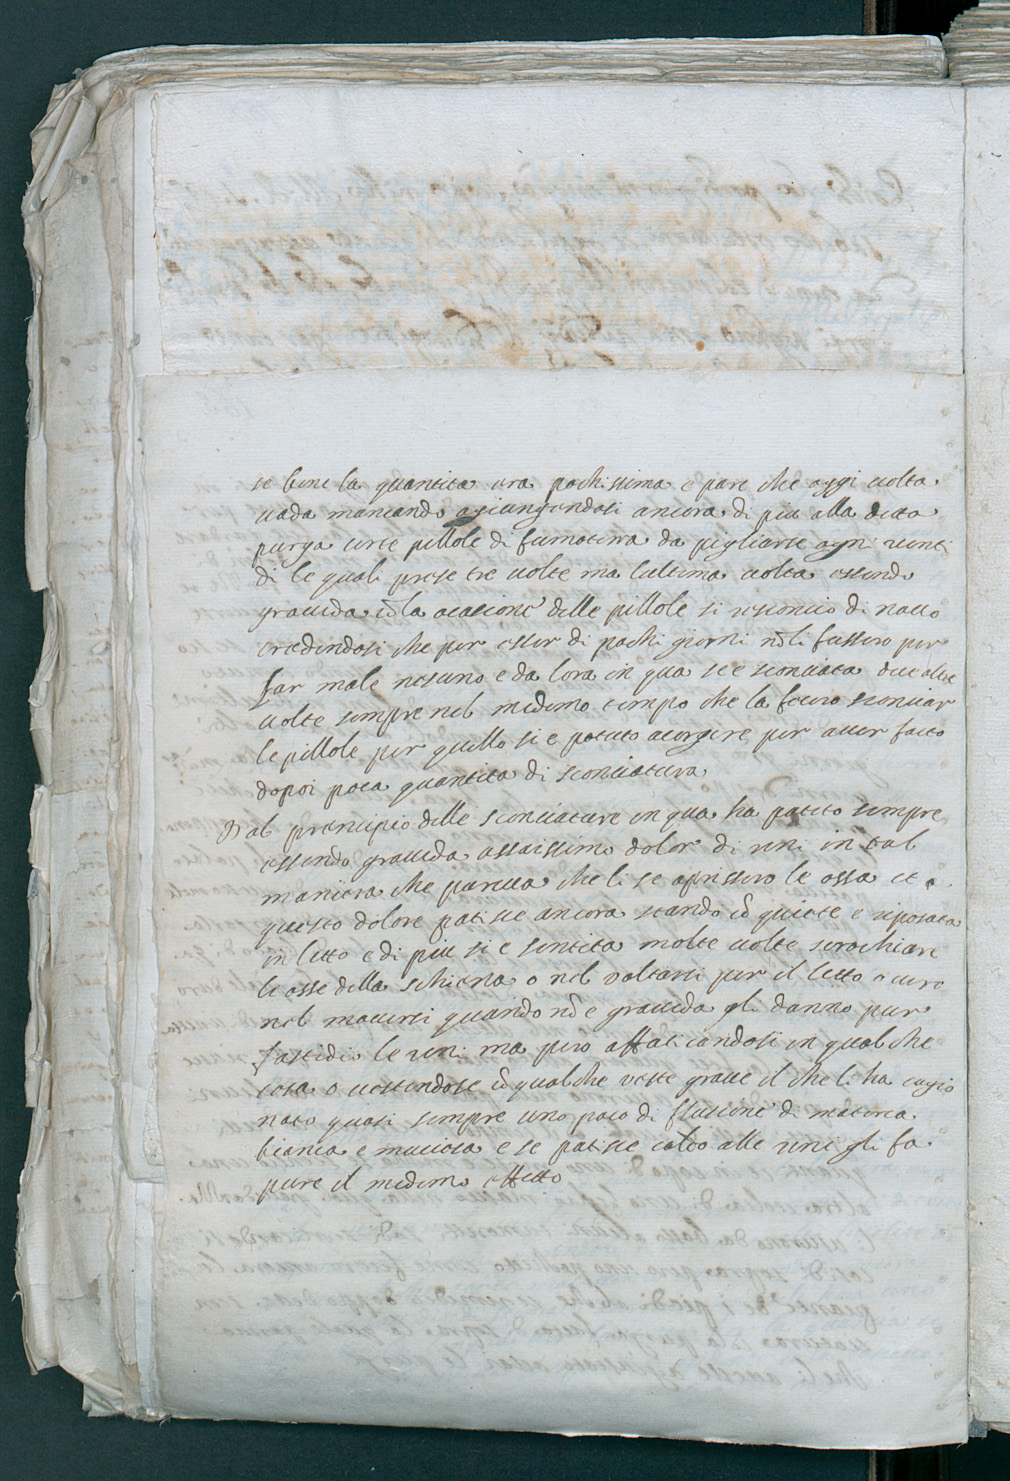 se bene la quantita era pochissima e pare che oggi uolta
uada mancando agiungendosi ancora di piu alla detta
purga certe pillole di fumoterra da pigliarse ogni uenti
di le quali prese tre uolte ma lultima uolta essendo
grauida cō la ocasione delle pillole si sconcio di nouo
credendosi che per esser di pochi giorni nō li fussero per
far male nesuno e da lora in qua se e sconciata due altre
uolte sempre nel medemo tempo che la fecero sconciar
le pillole per quello si e potuto acorgere per auer fatto
dopoi poca quantita di sconciatura
Dal principio delle sconciature in qua ha patito sempre
essendo grauida assaissimo dolor di reni in tal
maniera che pareua che li se aprissero le ossa et
questo dolore patisce ancora stando cō quiete e riposata
in letto e di piu si e sentita molte uolte scrochiare
le osse della schiena o nel voltarsi per il letto o uero
nel mouersi quando nō e grauida gli danno pur
fastidio le reni ma pero affaticandosi in qualche
cosa o uestendose cō qualche veste graue il che li ha cagio
nato quasi sempre uno poco di flusione di materia
bianca e muciosa e se patisce caldo alle reni gli fa
pure il medemo effetto